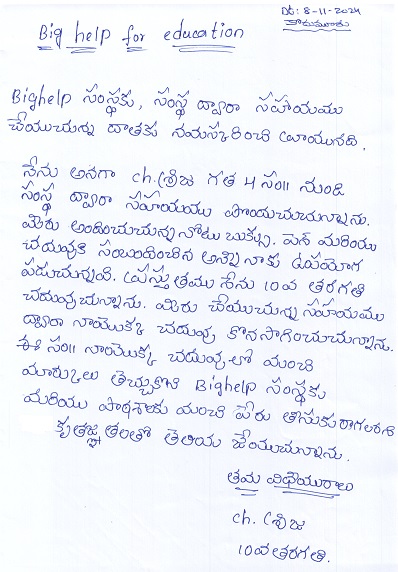 Dt: 8-11-2024
కొడుమూరు
Big help for education
Bighelp సంస్థకు, సంస్థ ద్వారా సహాయము
చేయుచున్న దాతకు నమస్కరించి వ్రాయునది.
నేను అనగా ch. శ్రీజ గత 4 సం॥ నుండి
సంస్థ ద్వారా సహాయము పొందుచున్నాను.
మీరు అందించుచున్న నోటు బుక్కు, పెన్ మరియు
చదువుకి సంబంధించిన అన్ని నాకు ఉపయోగ
పడుచున్నవి. ప్రస్తుతము నేను 10వ తరగతి
చదువుచున్నాను. మీరు చేయుచున్న సహాయము
ద్వారా నాయొక్క చదువు కొనసాగించుచున్నాను.
ఈ సం॥ నాయొక్క చదువులో మంచి
మార్కులు తెచ్చుకొని Bighelp సంస్థకు
మరియు పాఠశాలకు మంచి పేరు తీసుకురాగలనని
కృతజ్ఞతలతో తెలియ చేయుచున్నాను.
తమ విధేయురాలు
ch. శ్రీజ
10వ తరగతి.